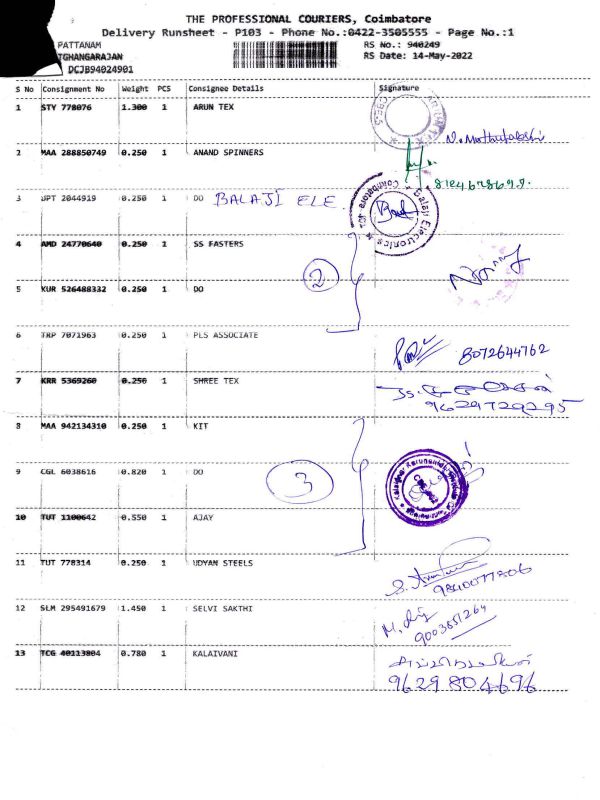 THE PROFESSIONAL COURIERS, Coimbatore
Delivery Runsheet - P103 - Phone No.:0422-3505555 - Page No.:1
PATTANAM RS No.: 940249
TGHANGARAJAN RS Date: 14-May-2022
DCJB94024901
S No Consignment No Weight PCS Consignee Details Signature
1 STY 778076 1.300 1 ARUN TEX
2 MAA 288850749 0.250 1 ANAND SPINNERS
3 JPT 2044919 0.250 1 DO BALAJI ELE.
Balaji Electronics
4 AMD 24770640 0.250 1 SS FASTERS
2
5 KUR 526488332 0.250 1 DO
6 TRP 7071963 0.250 1 PLS ASSOCIATE 8072644762
7 KRR 5369260 0.250 1 SHREE TEX
9629729295
8 MAA 942134310 0.250 1 KIT
9 CGL 6038616 0.820 1 DO
3
10 TUT 1100642 0.550 1 AJAY
11 TUT 778314 0.250 1 UDYAN STEELS
12 SLM 295491679 1.450 1 SELVI SAKTHI
9003651264
13 TCG 40113804 0.780 1 KALAIVANI
9629804696